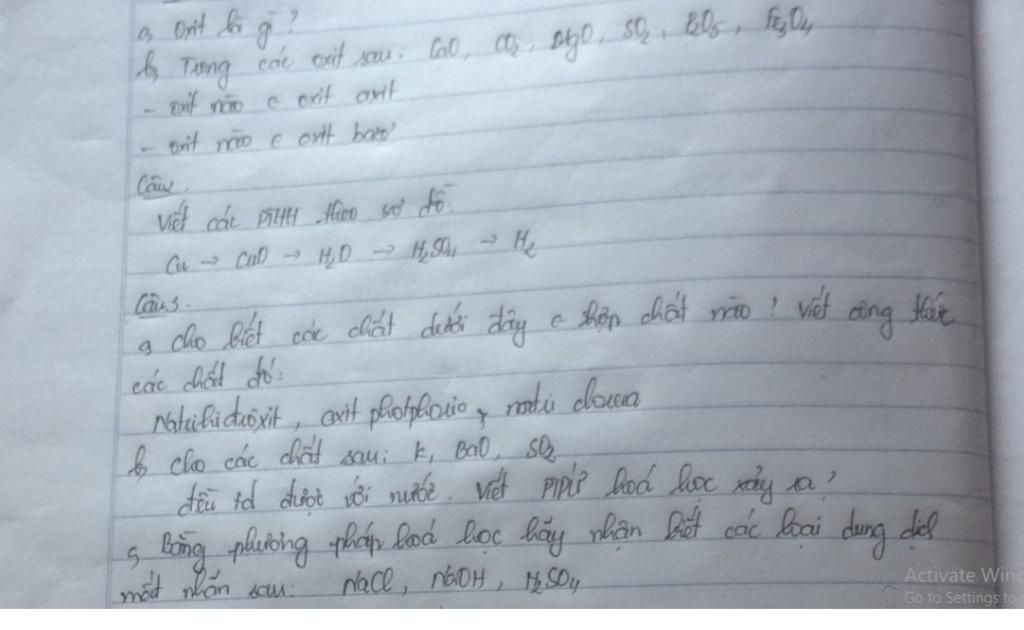 a, oxit là gì?
b, Trong các oxit sau: CaO, CO2, MgO, SO2, P2O5, Fe3O4
- oxit nào ϵ oxit axit
- oxit nào ϵ oxit bazơ
Câu2.
Viết các PTHH theo sơ đồ.
Cu → CuO → H2O → H2SO4 → H2
Câu3.
a cho biết các chất dưới đây ϵ hợp chất nào? Viết công thức
các chất đó:
Natrihidroxit, axit photphoric, natri clorua
b, cho các chất sau: K, BaO, SO2
đều td được với nước. Viết PTPƯ hoá học xảy ra?
c, Bằng phương pháp hoá học hãy nhận biết các loại dung dịch
mất nhãn sau: NaCl, NaOH, H2SO4
Activate Wind
Go to Settings to